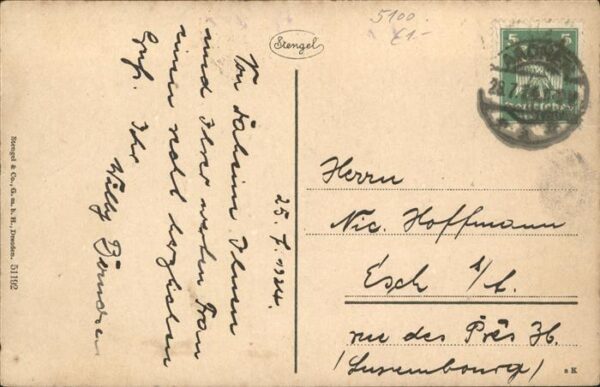 5100.
£1-
Stengel
5 5
AACHEN
Von daheim Ihnen
und Ihrer werten Frau
einen recht herzlichen
Gruß. Ihr
Willy
25. 7. 1924.
Herrn
Nic. Hoffmann
Esch s/A.
rue des Prés
(Luxembourg)
Stengel & Co., G. m. b. H., Dresden. 51192
a K